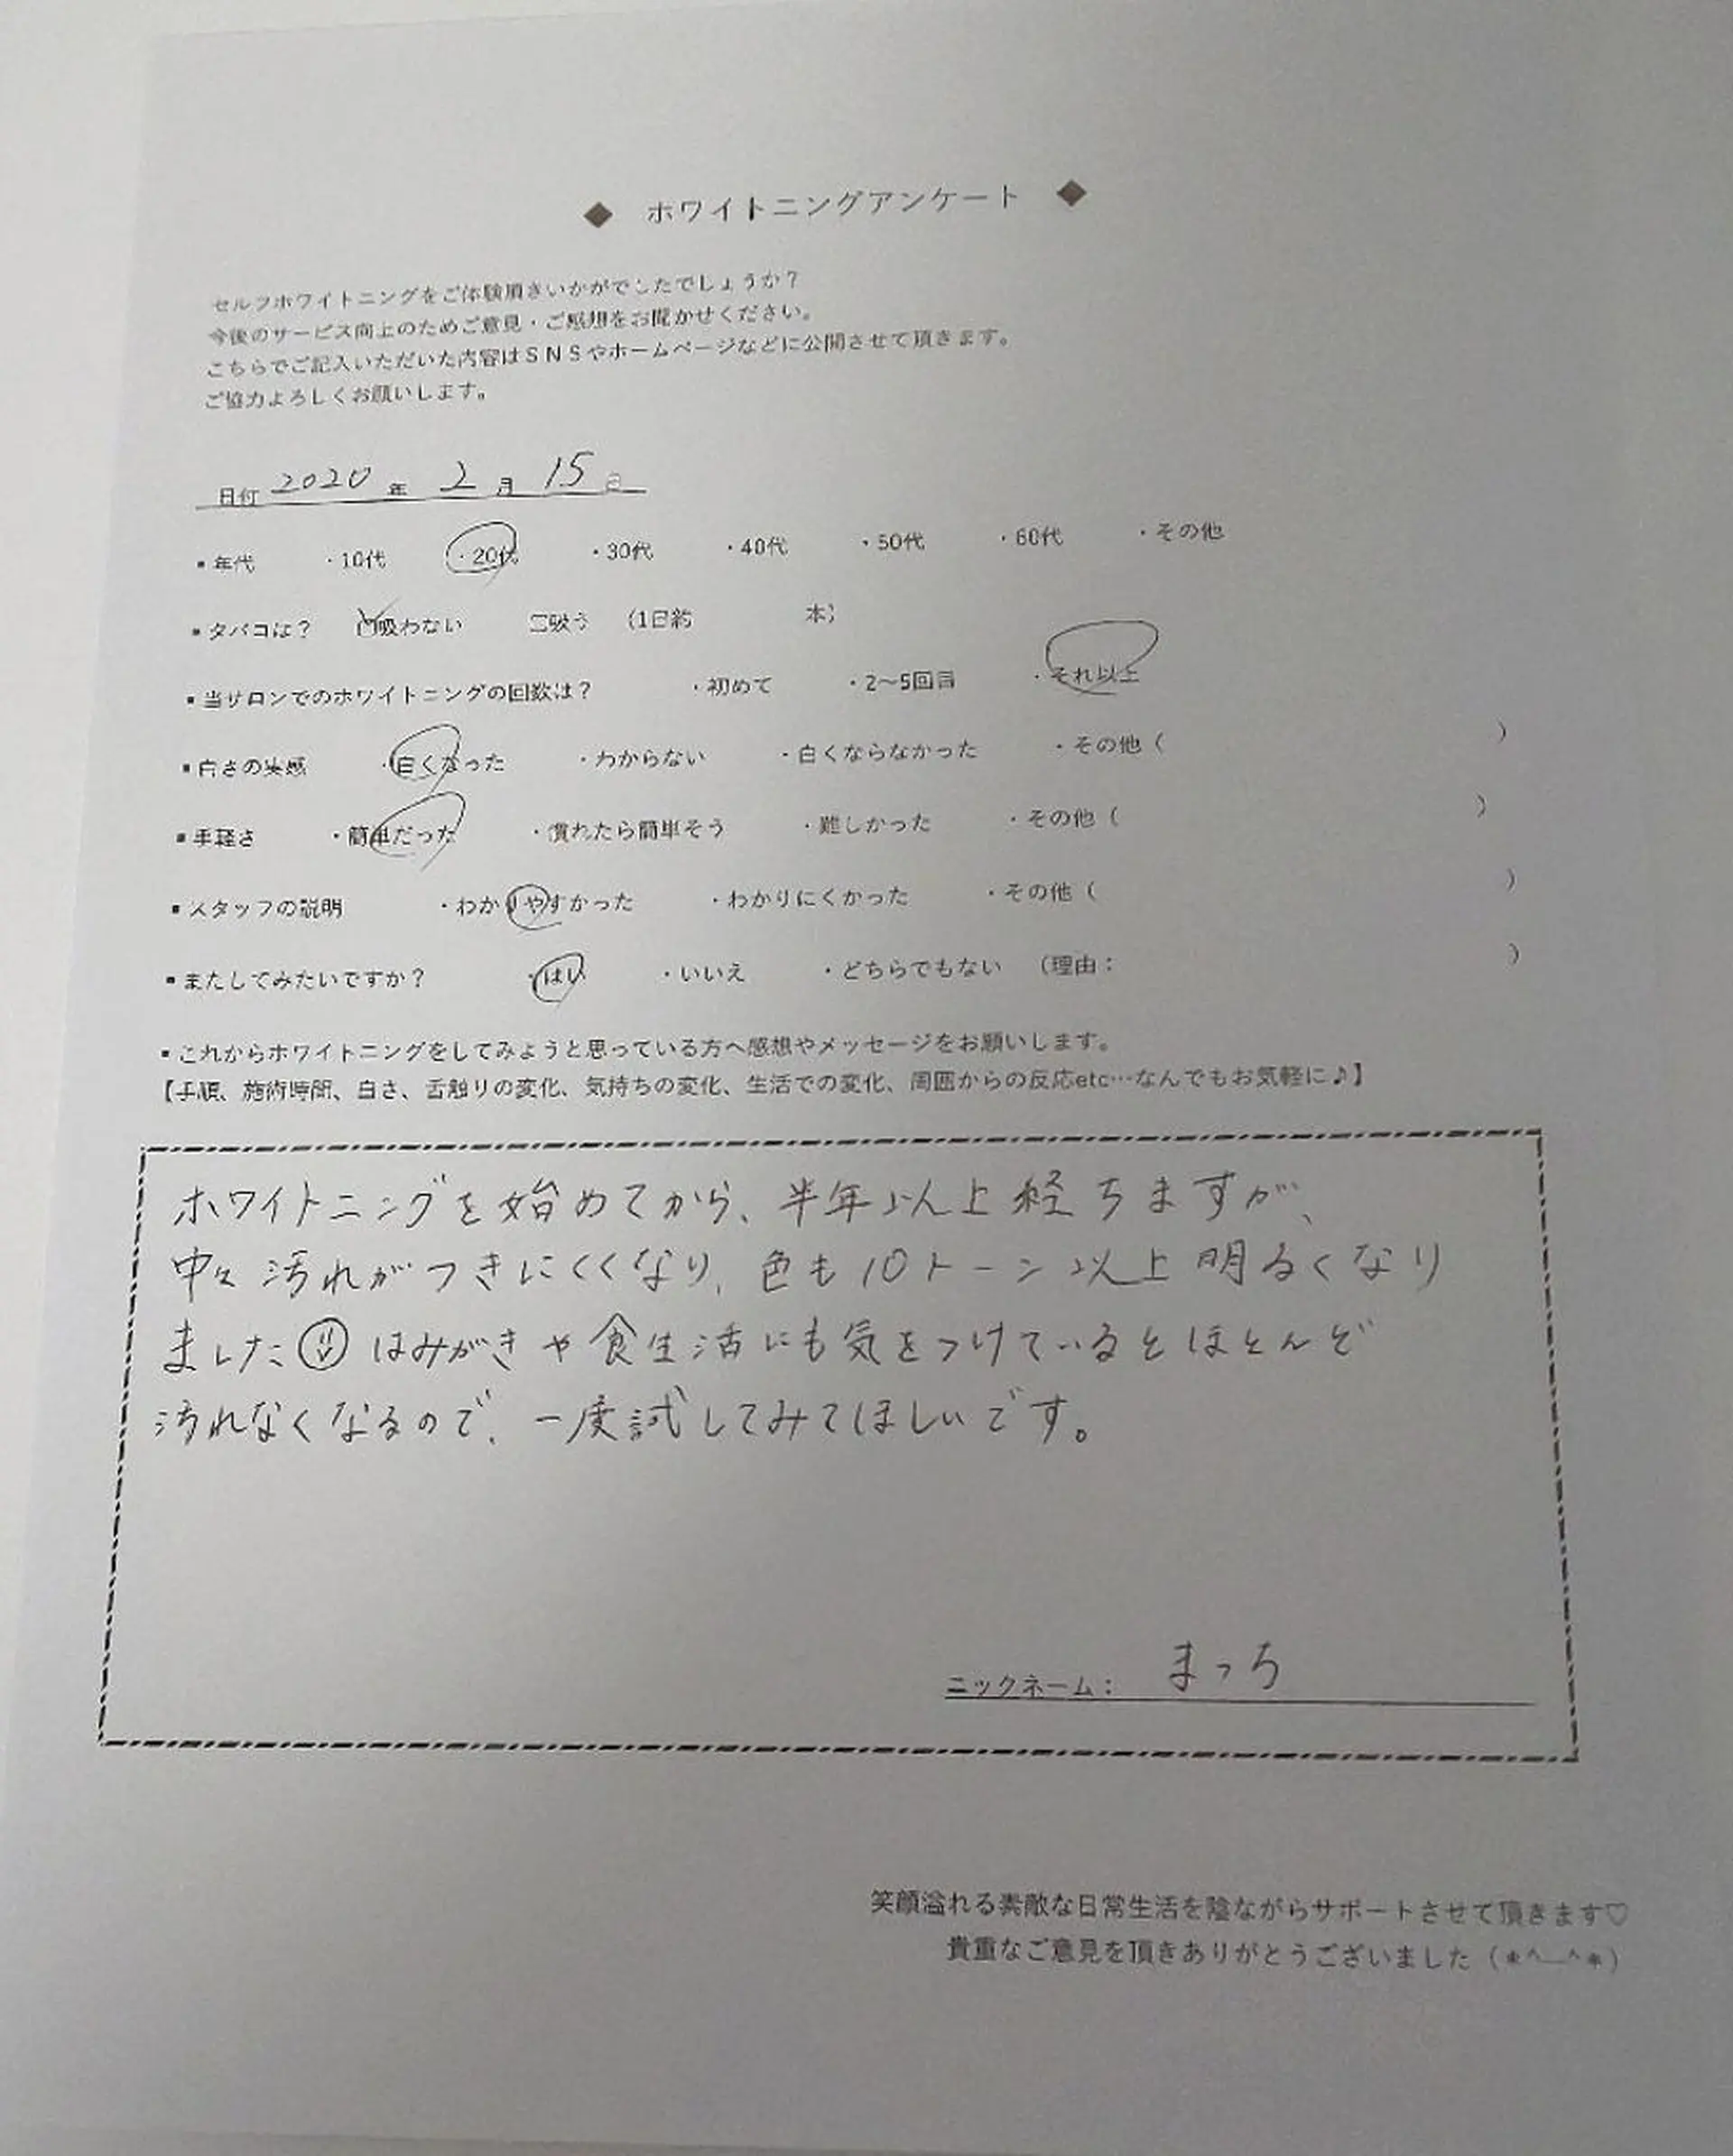 ◆ ホワイトニングアンケート ◆
セルフホワイトニングをご体験頂きいかがでしたでしょうか？
今後のサービス向上のためご意見・ご感想をお聞かせください。
こちらでご記入いただいた内容はＳＮＳやホームページなどに公開させて頂きます。
ご協力よろしくお願いします。
日付 2020 年 2 月 15 日
▪年代 ・10代 ・20代 ・30代 ・40代 ・50代 ・60代 ・その他
▪タバコは？ □吸わない □吸う （1日約 本）
▪当サロンでのホワイトニングの回数は？ ・初めて ・2〜5回目 ・それ以上
▪白さの実感 ・白くなった ・わからない ・白くならなかった ・その他（ ）
▪手軽さ ・簡単だった ・慣れたら簡単そう ・難しかった ・その他（ ）
▪スタッフの説明 ・わかりやすかった ・わかりにくかった ・その他（ ）
▪またしてみたいですか？ ・はい ・いいえ ・どちらでもない （理由： ）
▪これからホワイトニングをしてみようと思っている方へ感想やメッセージをお願いします。
【手順、施術時間、白さ、舌触りの変化、気持ちの変化、生活での変化、周囲からの反応etc…なんでもお気軽に♪】
ホワイトニングを始めてから、半年以上経ちますが、
中々汚れがつきにくくなり、色も10トーン以上明るくなり
ました はみがきや食生活にも気をつけているとほとんど
汚れなくなるので、一度試してみてほしいです。
ニックネーム： まっち
笑顔溢れる素敵な日常生活を陰ながらサポートさせて頂きます♡
貴重なご意見を頂きありがとうございました（*^—^*）